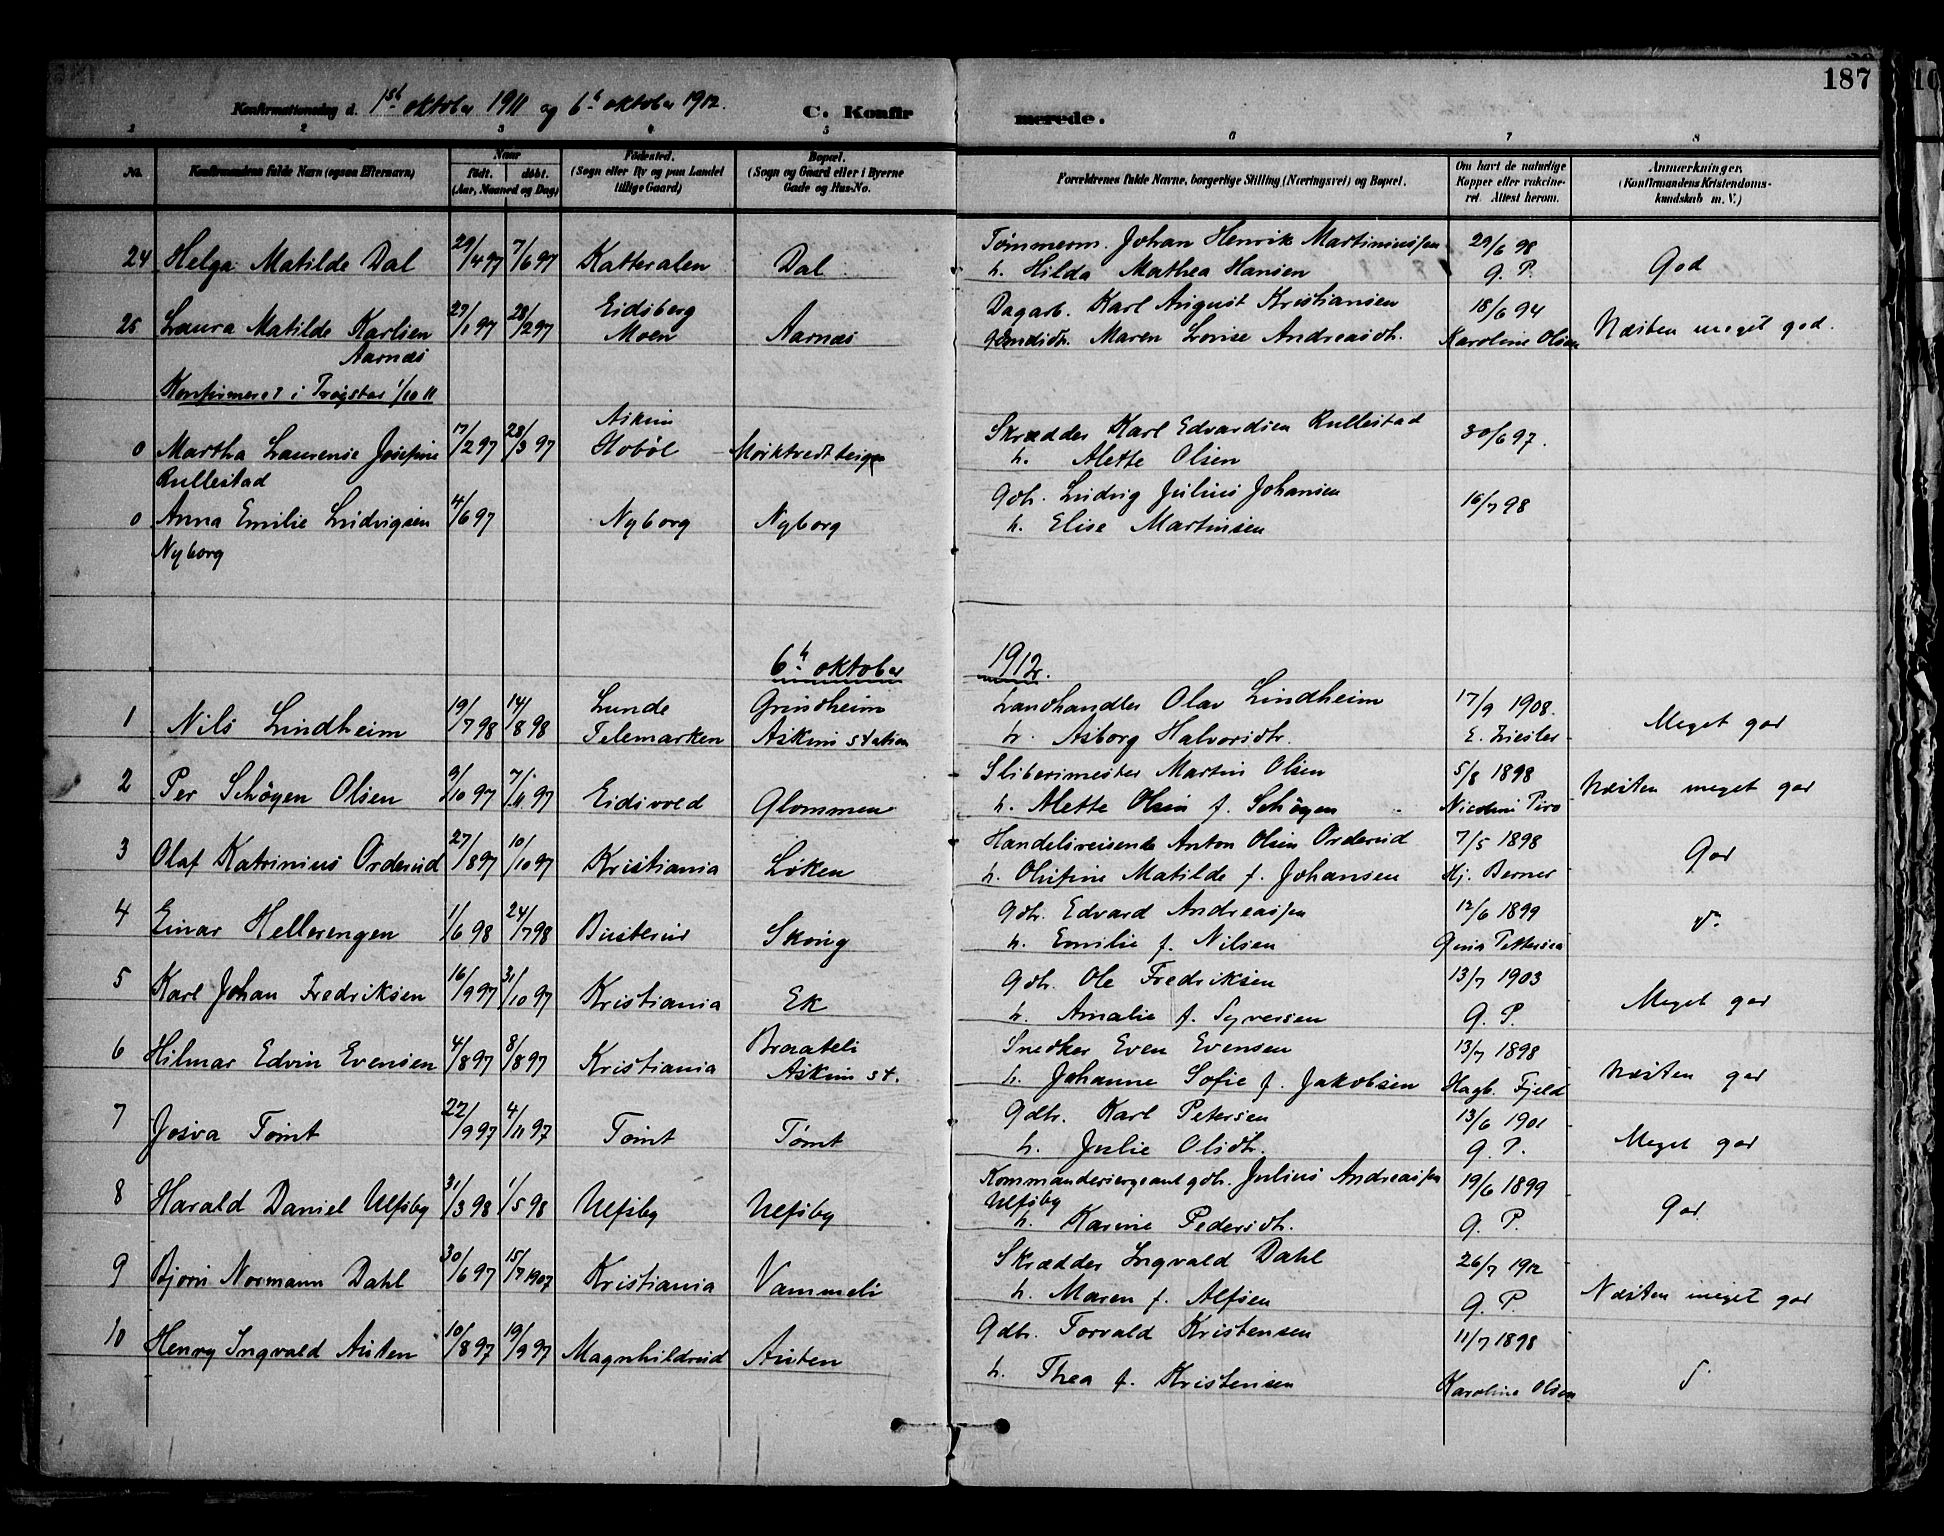 187
Konfirmationsdag d. 1st oktober 1911 og 6te oktober 1912.
C. Konfir merede.
1 2 3 4 5 6 7 8
No. Konfirmandens fulde Navn (ogsaa Efternavn) Naar født. døbt. (Aar, Maaned og Dag) Fødested. (Sogn eller By og paa Landet tillige Gaard) Bopæl. (Sogn og Gaard eller i Byerne Gade og Hus-No. Forældrenes fulde Navne, borgerlige Stilling (Næringsvei) og Bopæl. Om havt de naturlige Kopper eller vakcineret. Attest herom. Anmærkninger. (Konfirmandens Kristendomskundskab m. V.)
29/ 7/ Tømmerm. Johan Henrik Martiniussen 29/6 98
24 Helga Matilde Dal 4 97 6 97 Katteralen Dal h. Hilda Mathea Hansen G. P. God
27/ 28/ Eidsberg Dagarb. Karl August Kristiansen 18/6 94
25 Laura Matilde Karlsen 1 97 2 97 Moen Aarnæs Maren Lovise Andreasdtr. Karoline Olsen Næsten meget god.
Aarnæs
Konfirmeret i Trøgstad 1/10 11
17/ 28/ Askim Skrædder Karl Edvardsen Rullestad 30/6 97.
0 Martha Laurense Josefine 2 97 3 97 Hobøl h. Alette Olsen
Rullestad
4/ Gdbr. Ludvig Julius Johansen 16/7 98
0 Anna Emilie Ludvigsen 6 97 Nyborg Nyborg h. Elise Martinsen
Nyborg
6te oktober 1912.
19/ 14/ Lunde Grindheim Landhandler Olav Lindheim 17/9 1908.
1 Nils Lindheim 7 98 8 98 Telemarken Askim station h. Asborg Halvorsdtr. Meget god
9/ 7/ Sliberimester Martin Olsen 5/8 1898
2 Per Schøyen Olsen 10 97 11 97 Eidsvold Glommen h. Alette Olsen f. Schøyen Næsten meget god
27/ 10/ Handelsreisende Anton Olsen Orderud 7/5 1898
3 Olaf Katrinius Orderud 8 97 10 97 Kristiania Løken h. Olufine Matilde f. Johansen Hj. Berner God
1/ 24/ Gdbr. Edvard Andreassen 12/6 1899
4 Einar Hellerengen 6 98 7 98 Busterud Skoug h. Emilie f. Nilsen Pettersen
16/ 31/ Gdbr. Ole Fredriksen 13/7 1903
5 Karl Johan Fredriksen 9 97 10 97 Kristiania Ek h. Amalie f. Syversen G. P. Meget god
4/ 8/ Braateli Snedker Even Evensen 13/7 1898
6 Hilmar Edvin Evensen 8 97 8 97 Kristiania Askim st. h. Johanne Sofie f. Jakobsen Hagb. Fjeld Næsten god
22/ 4/ Gdbr. Karl Petersen 13/6 1901
7 Josva Tømt 9 97 11 97 Tømt Tømt h. Julie Olsdtr. G. P. Meget god
31/ 1/ Kommandersergeant gdbr. Julius Andreassen 19/6 1899
Ulfsby
8 Harald Daniel Ulfsby 3 98 5 98 Ulfsby Ulfsby h. Karine Pedersdtr. G. P. God
30/ 15/ Skrædder Ingvald Dahl 26/7 1912
9 Bjørn Normann Dahl 6 97 7 1907 Kristiania Vammeli h. Maren f. Alfsen G. P. Næsten meget god
10/ 19/ Gdbr. Torvald Kristensen 11/7 1898
10 Henry Ingvald Austen 8 97 9 97 Magnhildrud Austen h. Thea f. Kristensen Karoline Olsen